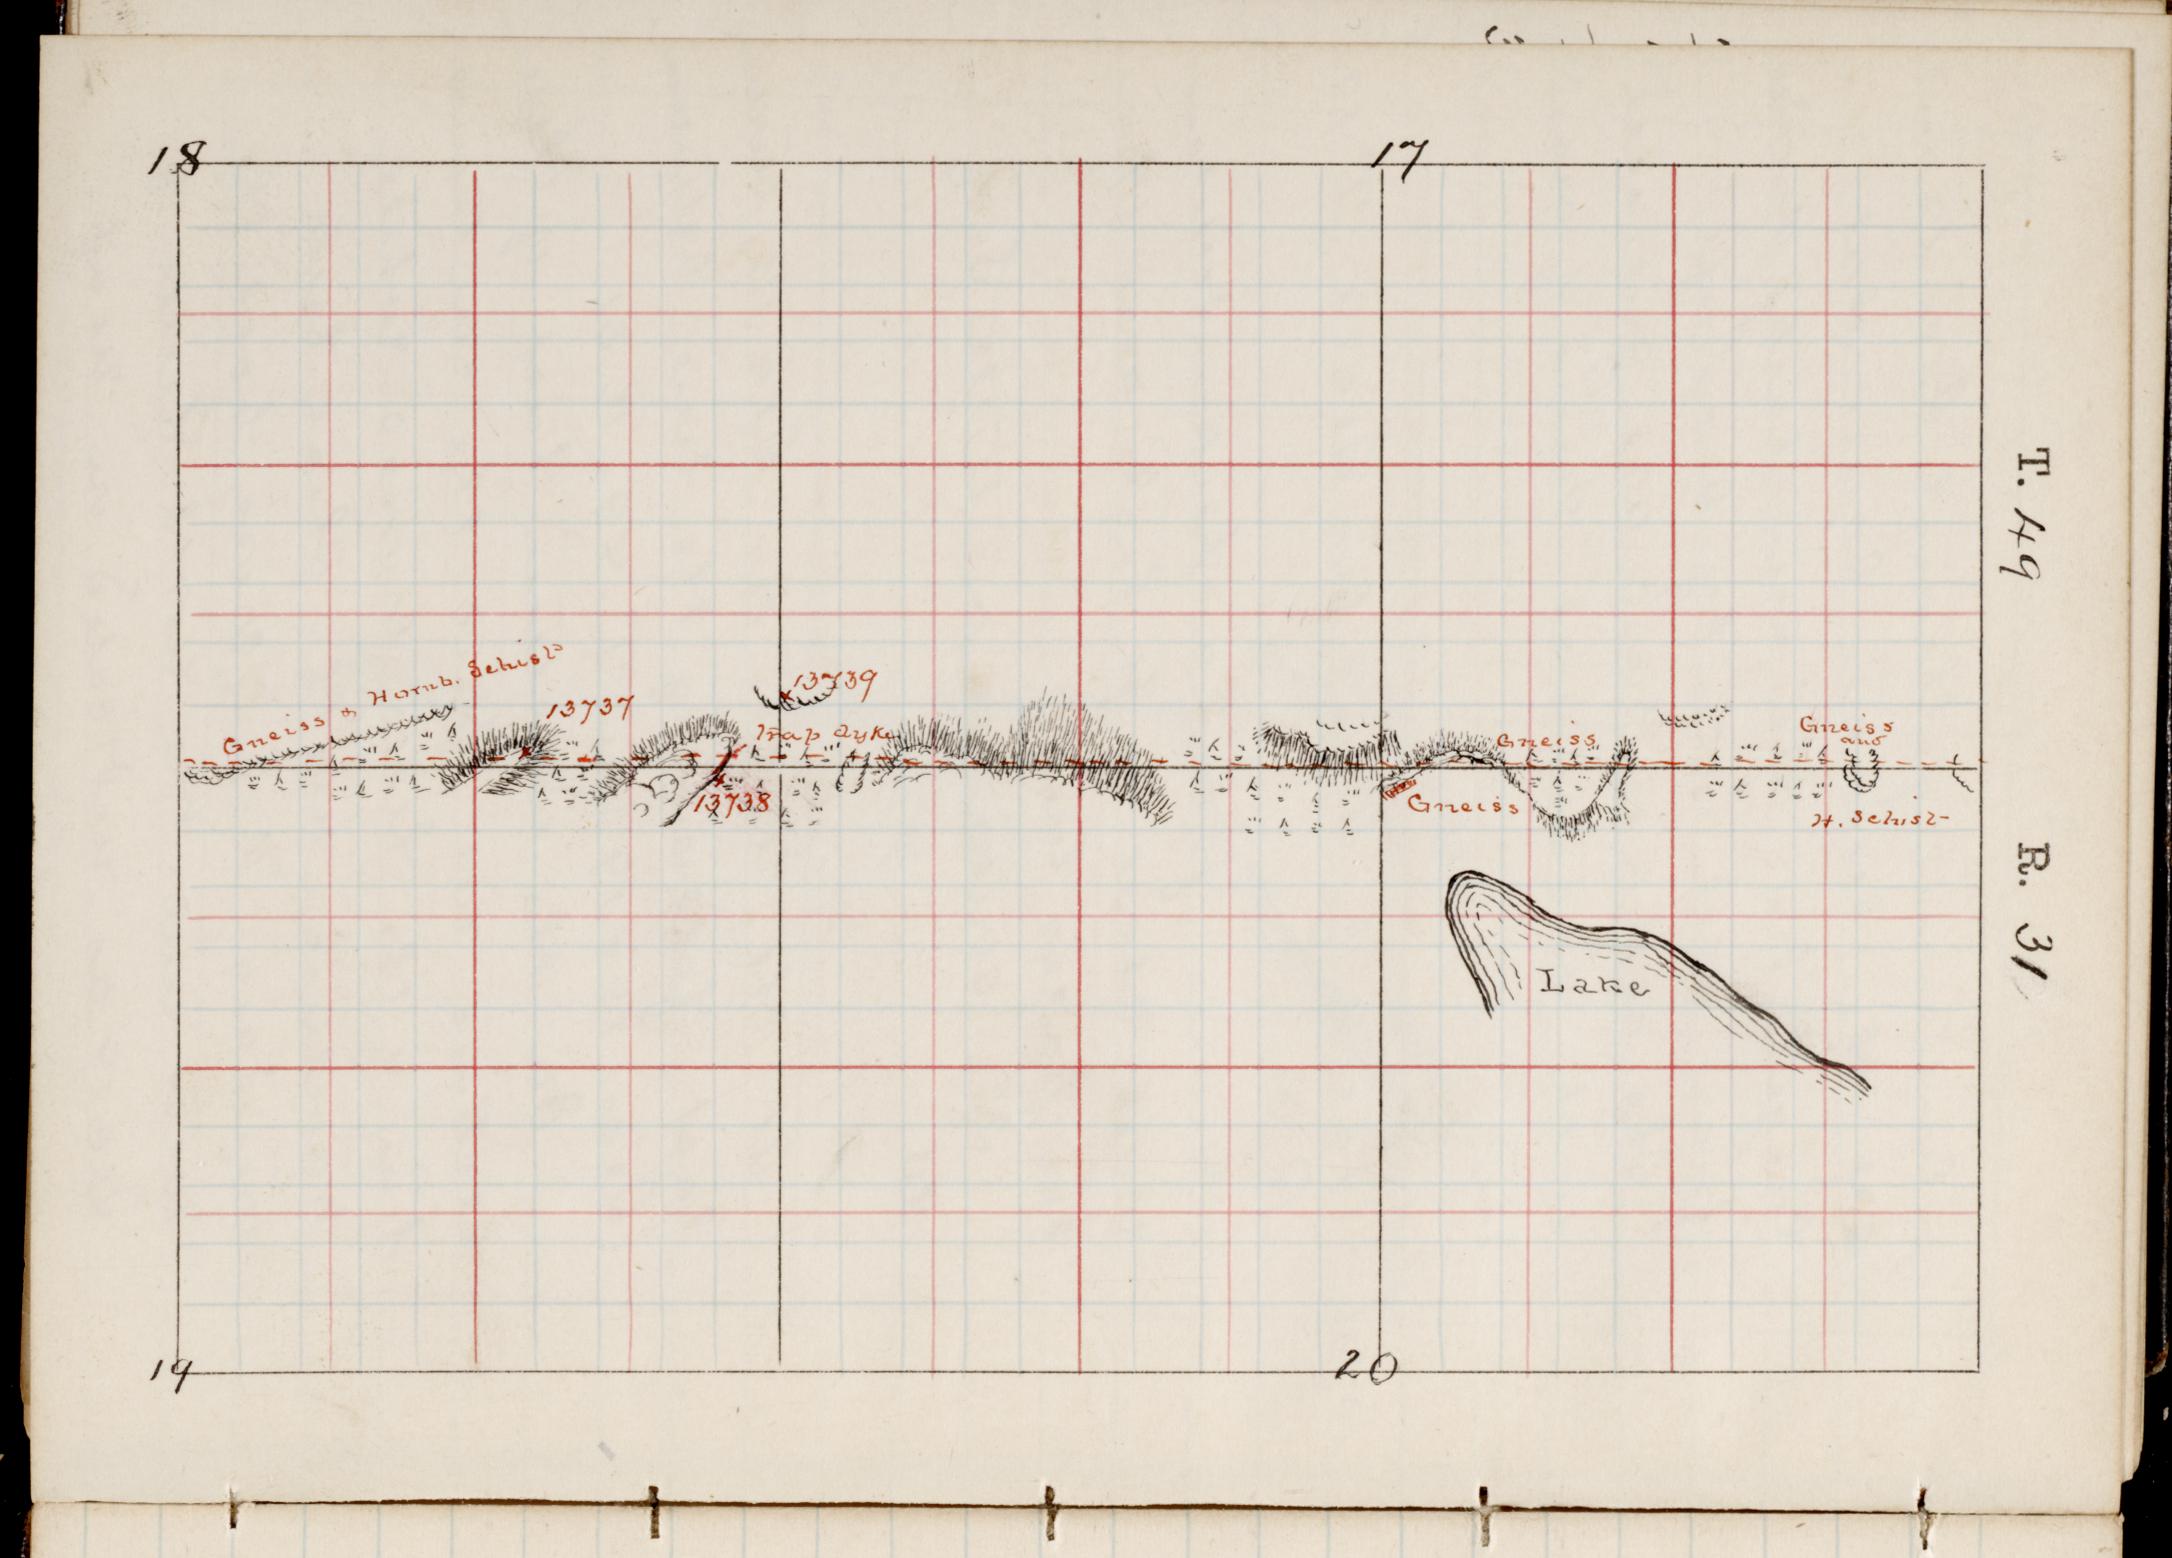 18
17
T. 49
R. 31
Gneiss & Hornb. Schist
13737
13739
Trap dyke
13738
Gneiss
Gneiss
Gneiss
and
H. Schist
Lake
19
20